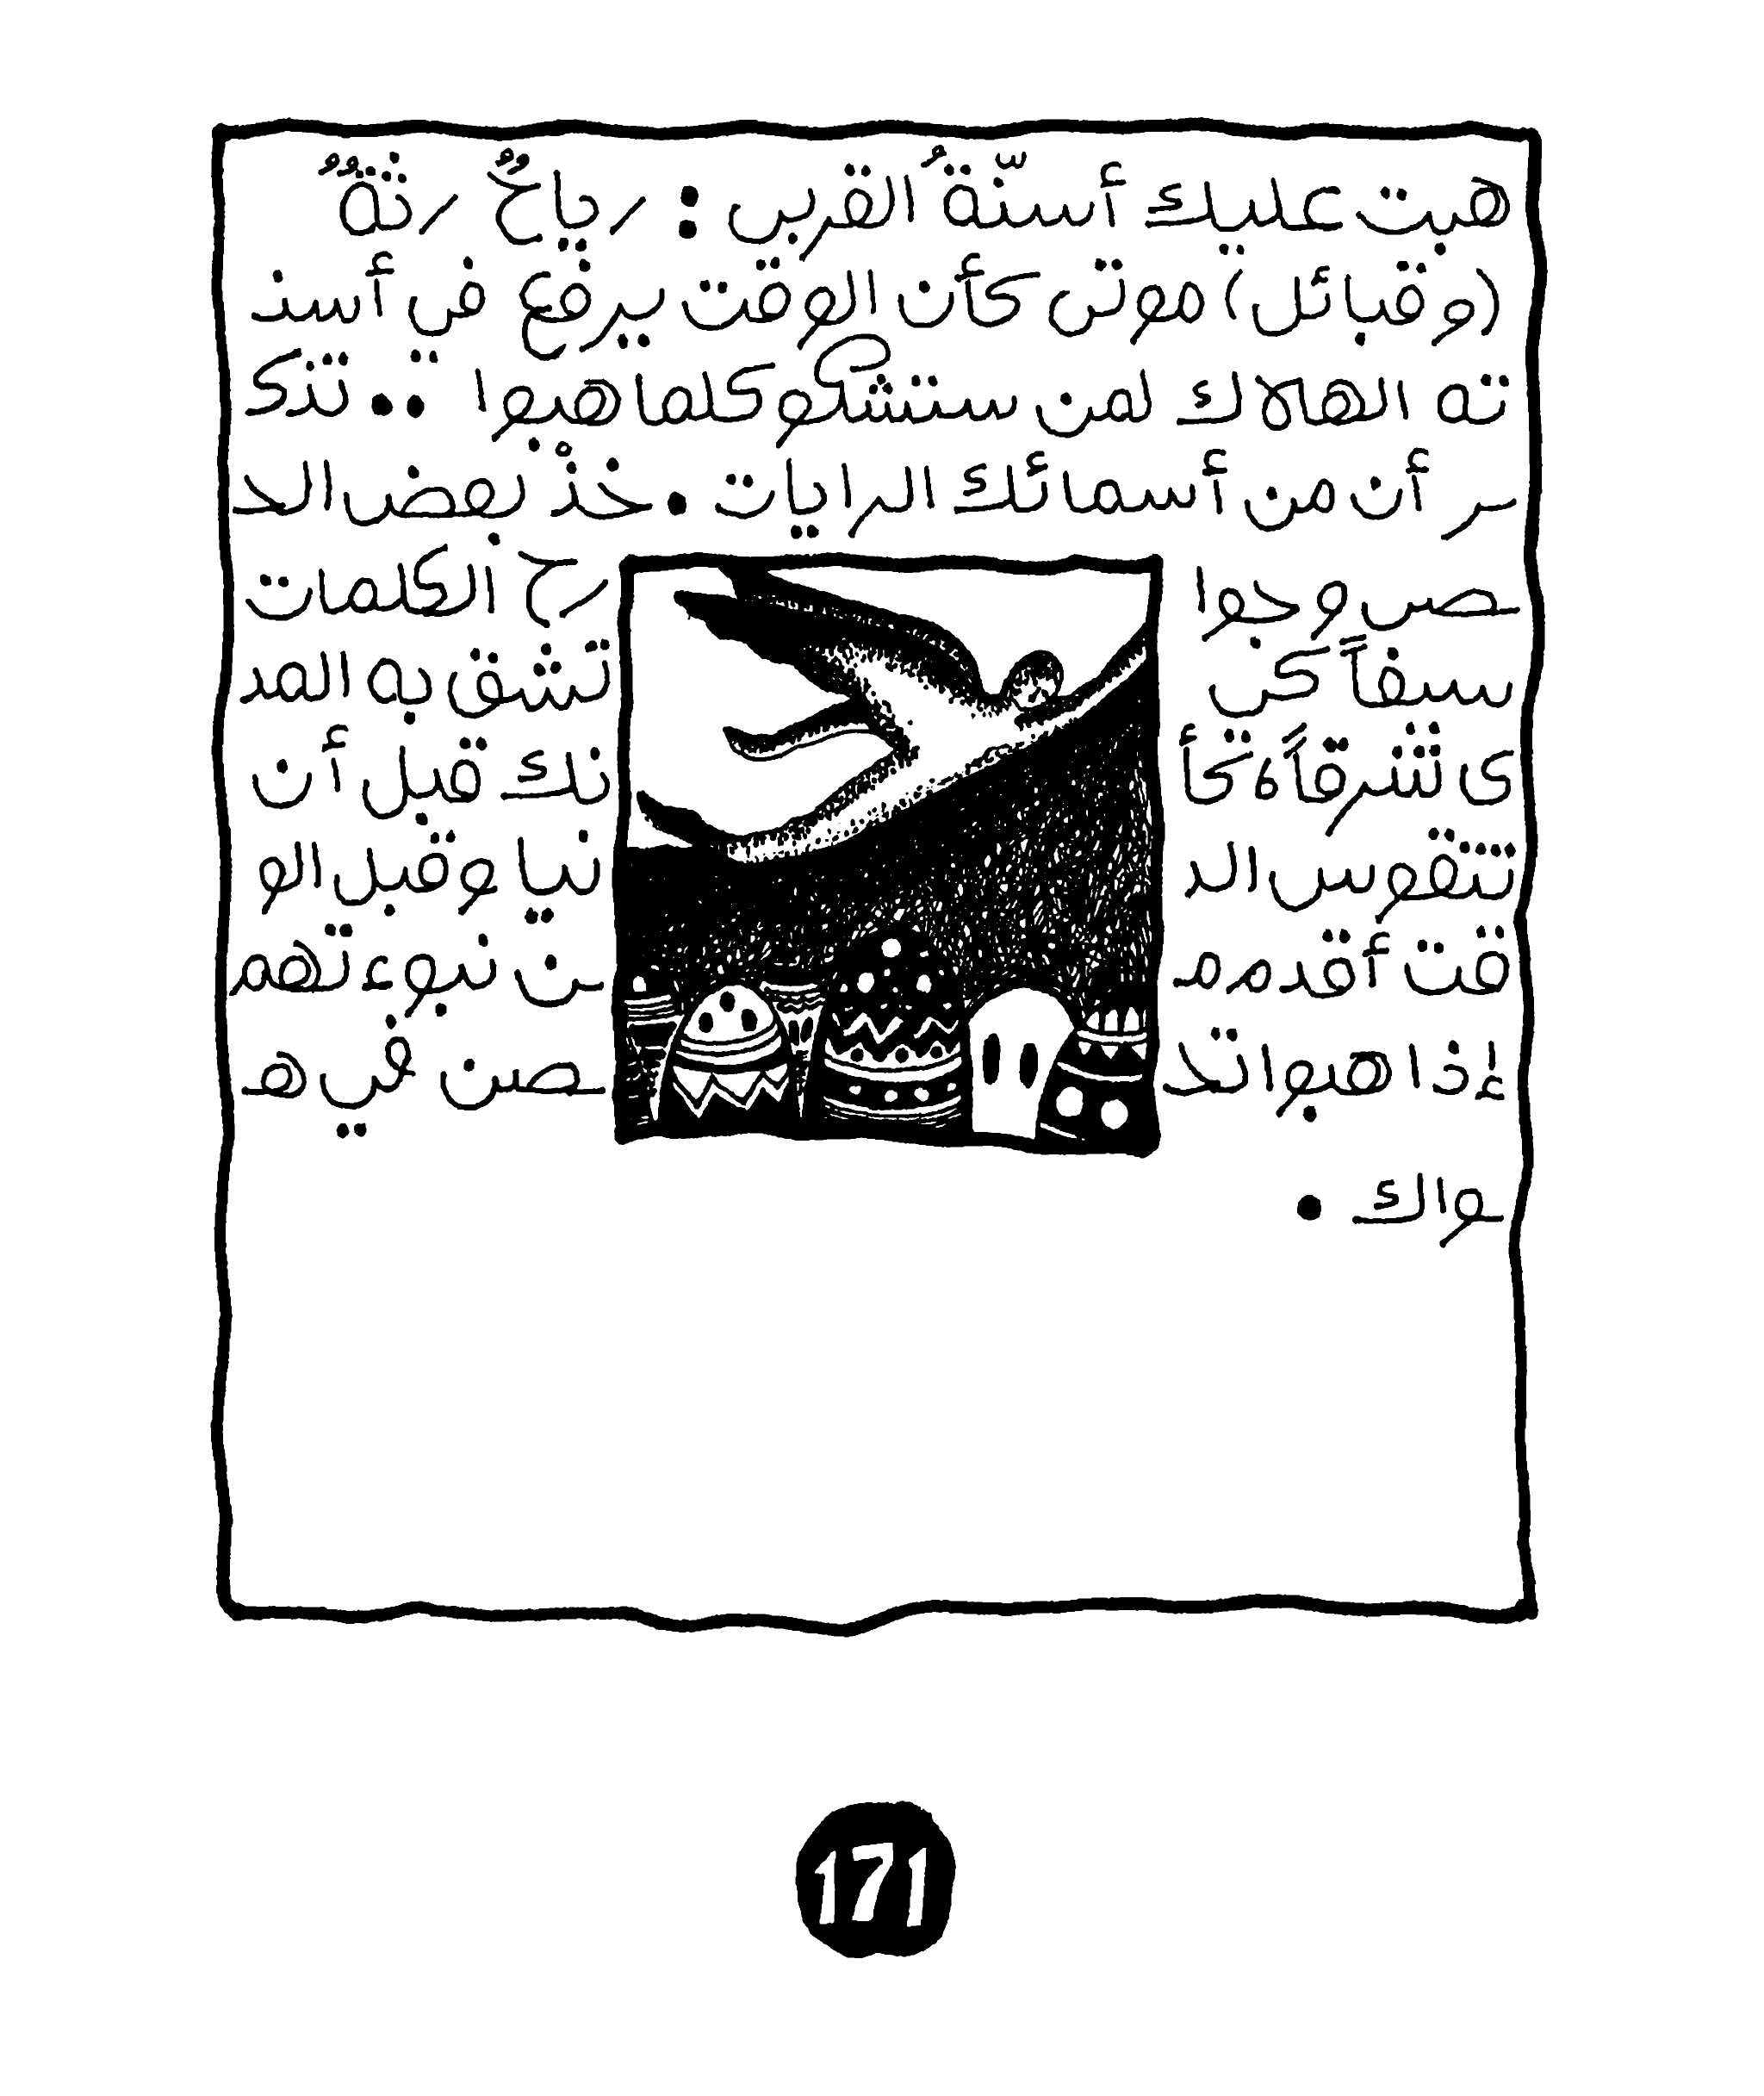 هبت عليك أسنّةُ القربى : رياحٌ رثةٌ
(وقبائل) موتى كأن الوقت يرفع في أسنـ
ته الهلاك لمن ستشكو كلما هبوا .. تذكـ
ـر أن من أسمائك الرايات . خذْ بعض الحـ
ـصى وجوا رح الكلمات
سيفاً كي تشق به المد
ى شرقاً، كأ نك قبل أن
تتقوس الد نيا وقبل الو
قت أقدم مـ ـن نبوءتهم
إذا هبوا تحـ ـصن في هـ
ـواك .
171